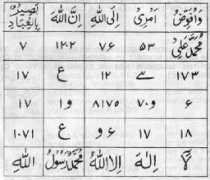 وافوض امری الی الله ان الله بصیر بالعباد
محمد علی ۵۳ ۷۶ ۱۲۰۲ ۷
۱۷۳ سے ۱۲ ع ۱۷
۶ و۷۰ ۸۱۷۵ وا ۱۷
۱۸ ۱۷ ۶و ع ۱۰۷۱
لا اله الا الله محمد رسول الله